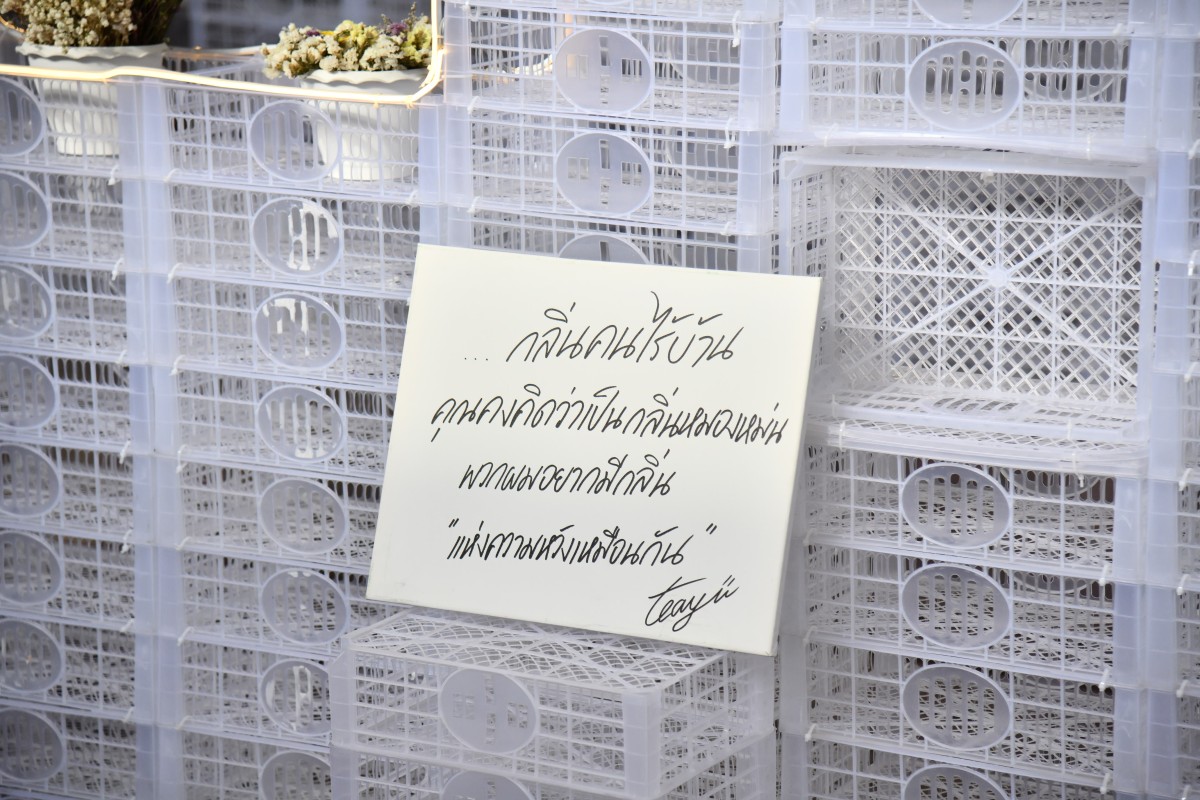 ... กลิ่นคนไร้บ้าน
คุณคงคิดว่าเป็นกลิ่นหมองเหม่น
พวกผมอยากมีกลิ่น
"แห่งความหวังเหมือนกัน"